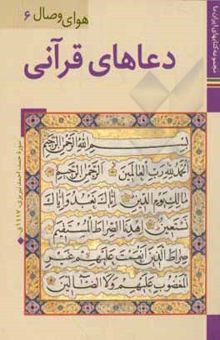 مجموعه کتابهای ایران ما
هوای وصال ۶
دعاهای قرآنی
بِسْمِ اللهِ الرَّحْمنِ الرَّحيمِ
اَلْحَمْدُ لِلّهِ رَبِّ الْعالَمينَ اَلرَّحْمنِ الرَّحيمِ
مالِكِ يَوْمِ الدّينِ اِيّاكَ نَعْبُدُ وَاِيّاكَ
نَسْتَعينُ اِهْدِنَا الصِّراطَ الْمُسْتَقيمَ
صِراطَ الَّذينَ اَنْعَمْتَ عَلَيْهِمْ غَيْرِ
الْمَغْضُوبِ عَلَيْهِمْ وَلَا الضّالّينَ
سورهٔ حمد، احمد نیریزی، ۱۱۱۷ ق.